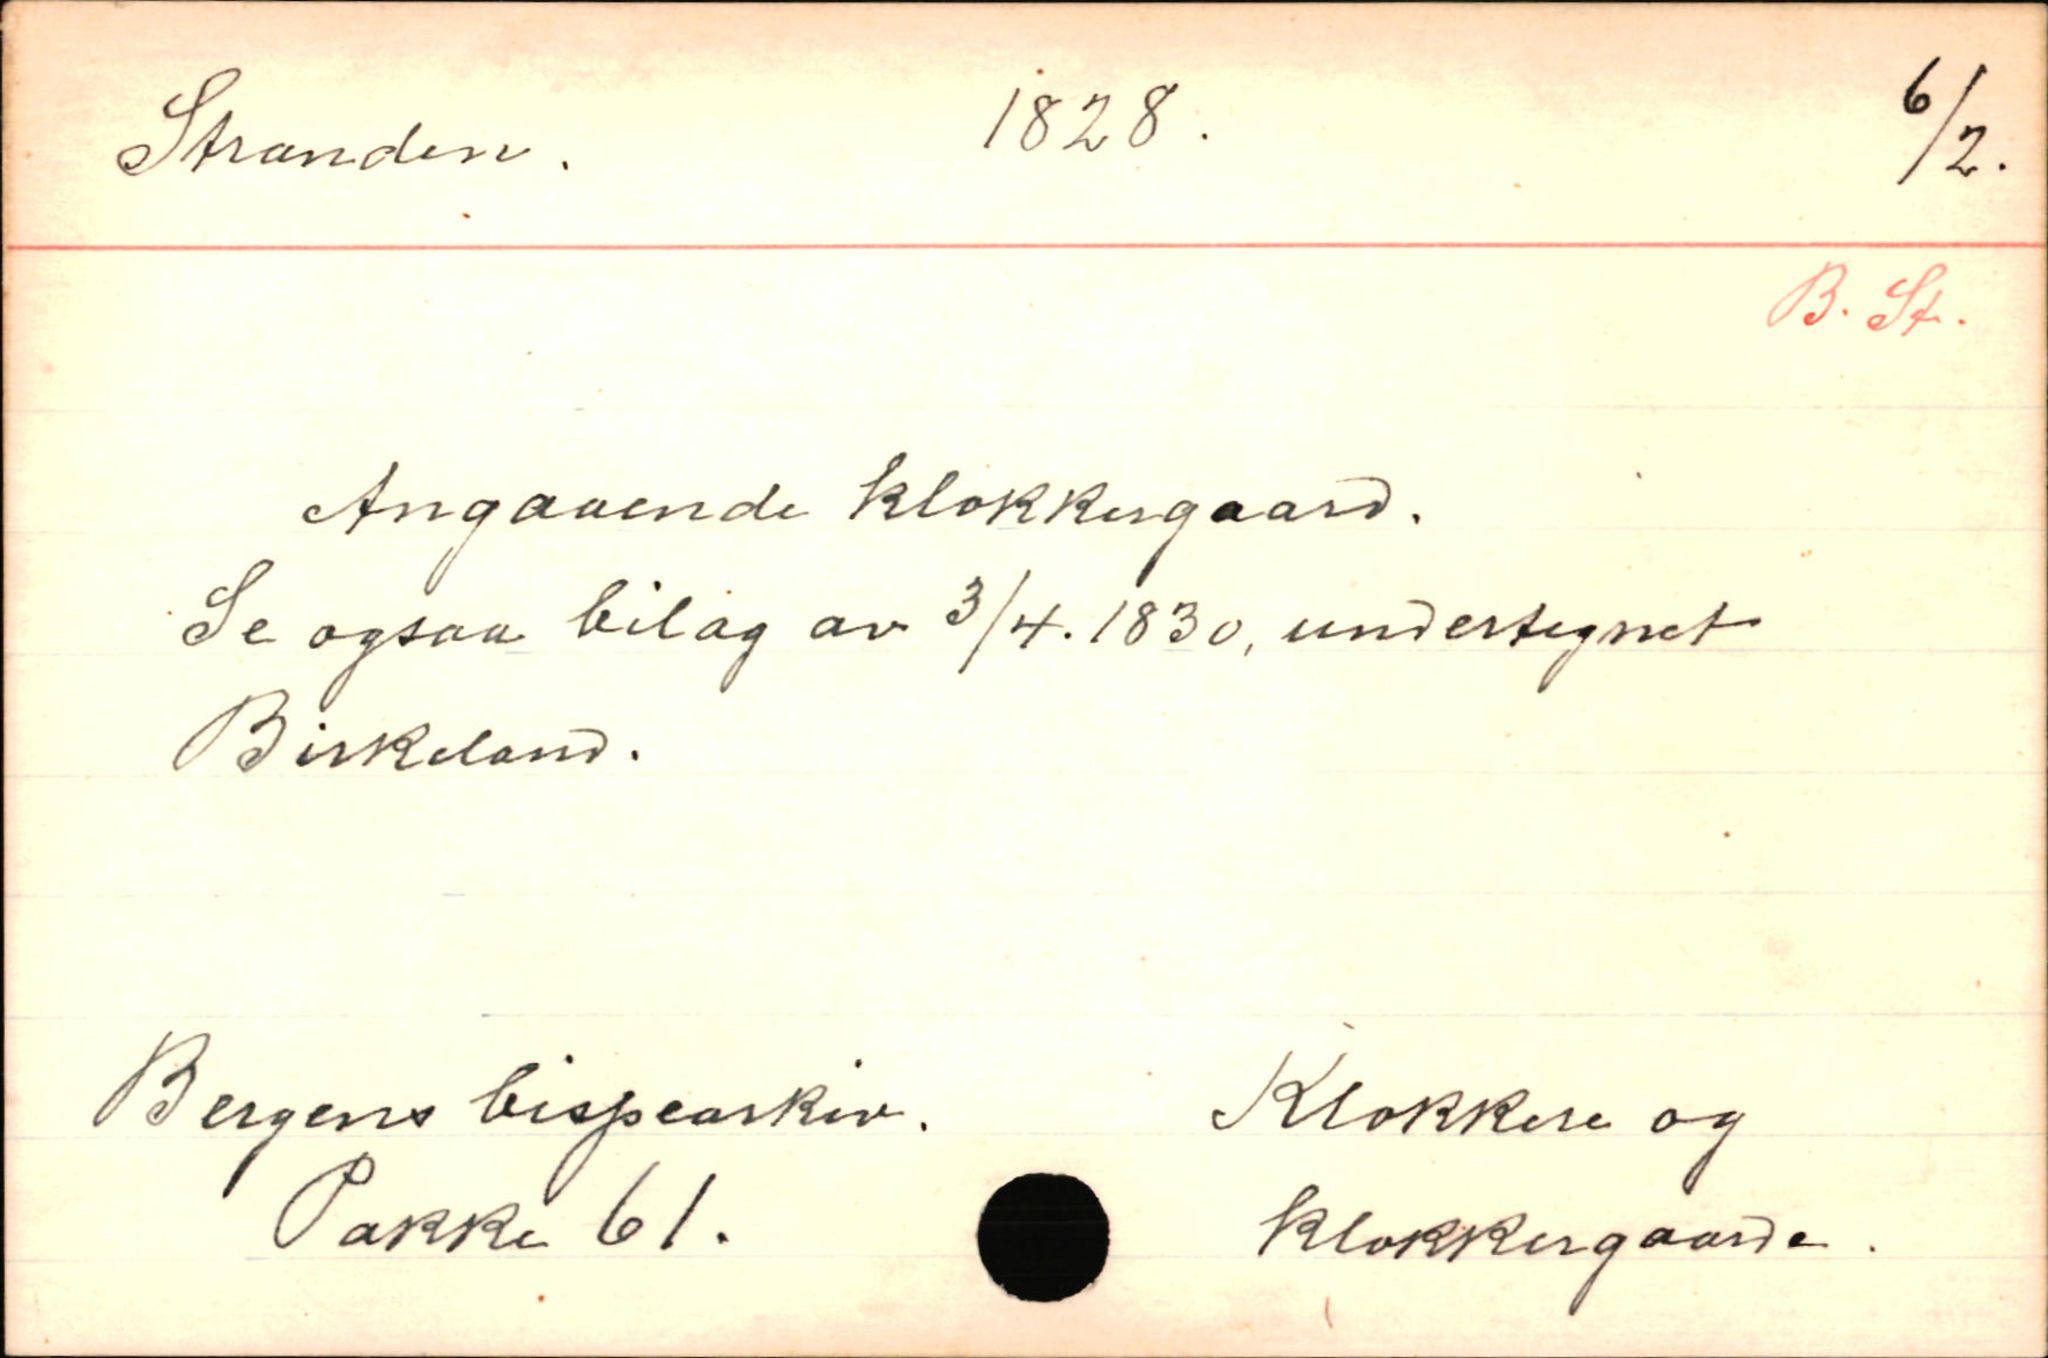 Stranden. 1828. 6/2.
B. St.
Angaaende klokkergaard.
Se ogsaa bilag av 3/4. 1830, undertegnet
Birkeland.
Bergens bispearkiv. Klokkere og
Pakke 61. klokkergaarde.